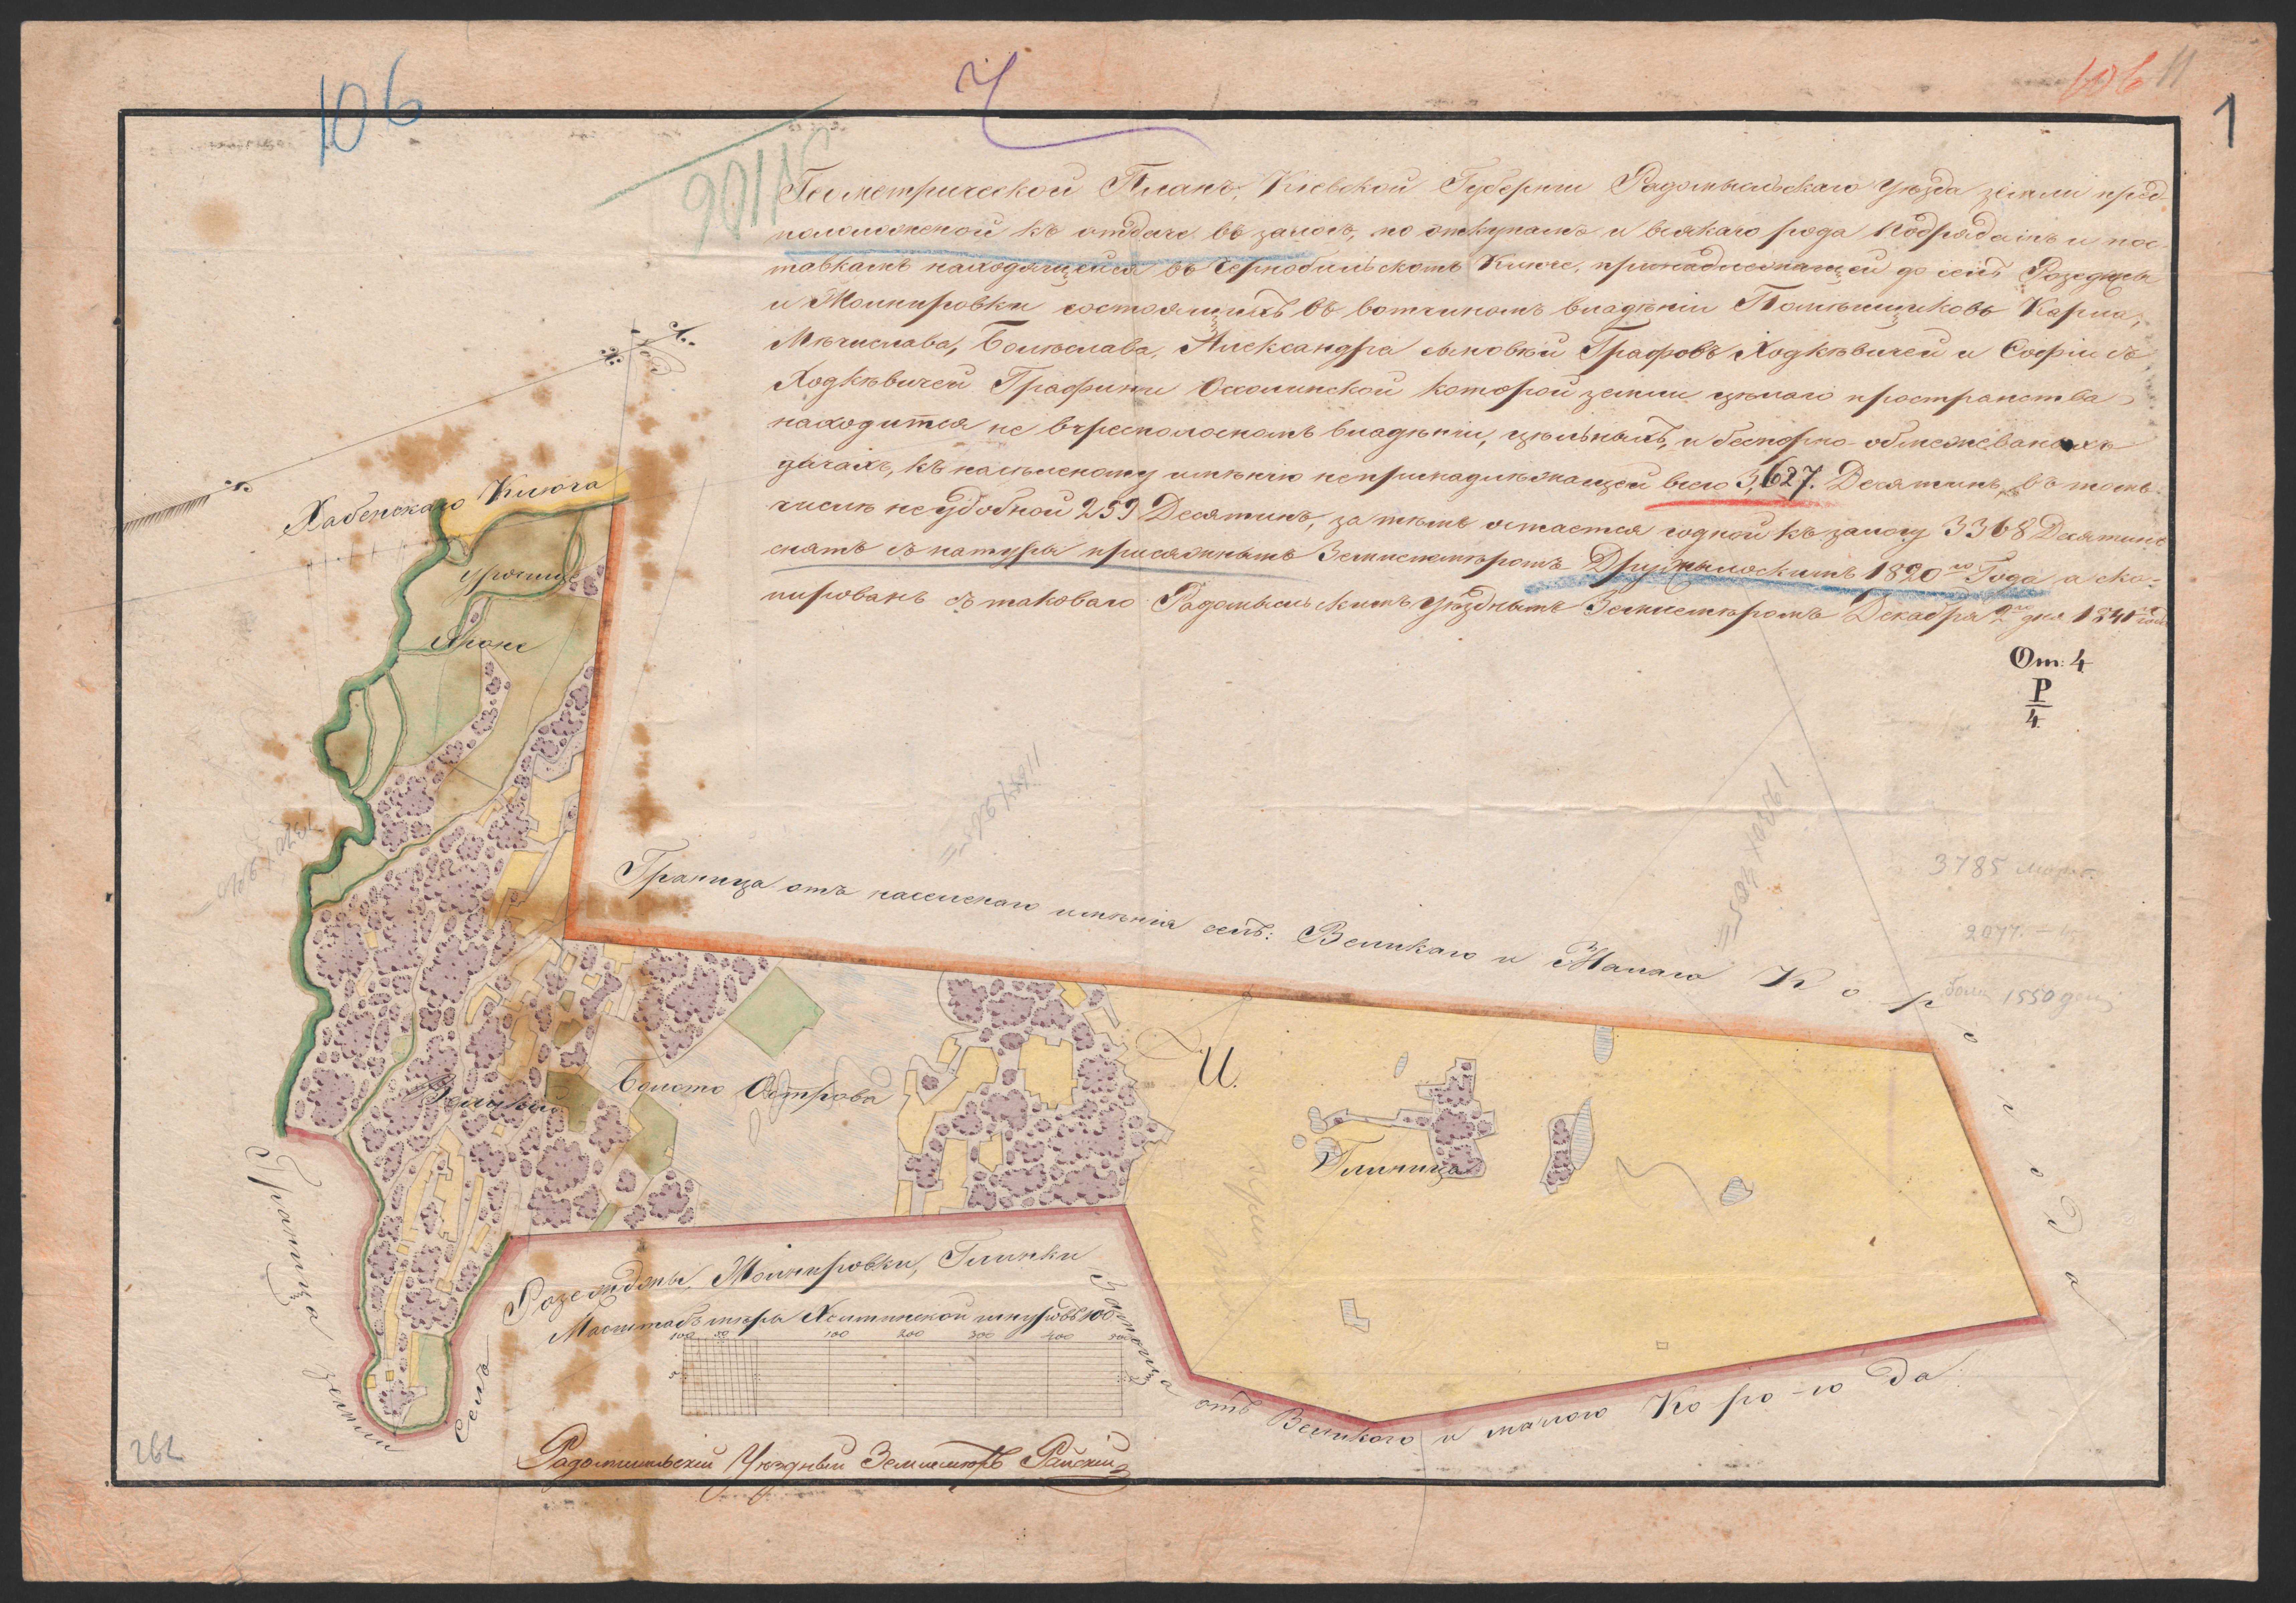 106
Ч
106 11
1
№ 106
Геометрической Планъ, Кіевской Губерніи Радомысльскаго Уѣзда земли пред-
положенной къ отдачѣ въ залогъ, по откупамъ и всякаго рода подрядамъ и пос-
тавкамъ находящейся въ Чернобыльскомъ Ключѣ, принадлежащей до селъ
и состоящихъ въ вотчиномъ владѣніи Помѣщиковъ Карла,
Мѣчислава, Болѣслава, Александра сыновей Графовъ Ходкѣвичей и Софіи съ
Ходкѣвичей Графини Оссолинской которой земли цѣлаго пространства
находится не вчресполосномъ владѣніи, цѣльныхъ, и безспорно обмежеваныхъ
дачахъ, къ населеному имѣнію непринадлежащей всего 3,627. Десятинъ, въ томъ
числѣ неудобной 259 Десятинъ, за тѣмъ остается годной къ залогу 3368 Десятинъ
снятъ съ натуры присяжнымъ Землемѣромъ 1820го Года, а ско-
пированъ съ таковаго Радомысльскимъ Уѣзднымъ Землемѣромъ Декабря 2го дня 1841 года
От: 4
Р
4.
Хабенскаго Ключа
Урочище
Граница отъ населенаго имѣнія селъ: Великаго и Малаго Корогода
3785
2077
1550
Болото Острова
Великій
И.
Глиница
Граница земли Селъ
Розсождены, Глинки
Масштабъ мѣры
100 50 100 200 300 400 500
Граница отъ Великого и малого Корогода
Радомысльскій Уѣздный Землемѣръ Райскій
262